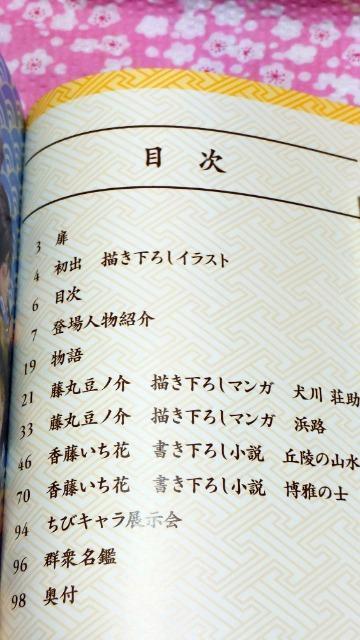 目 次
3 扉
4 初出 描き下ろしイラスト
6 目次
7 登場人物紹介
19 物語
21 藤丸豆ノ介 描き下ろしマンガ 犬川 荘助
33 藤丸豆ノ介 描き下ろしマンガ 浜路
46 香藤いち花 書き下ろし小説 丘陵の山水
70 香藤いち花 書き下ろし小説 博雅の士
94 ちびキャラ展示会
96 群衆名鑑
98 奥付